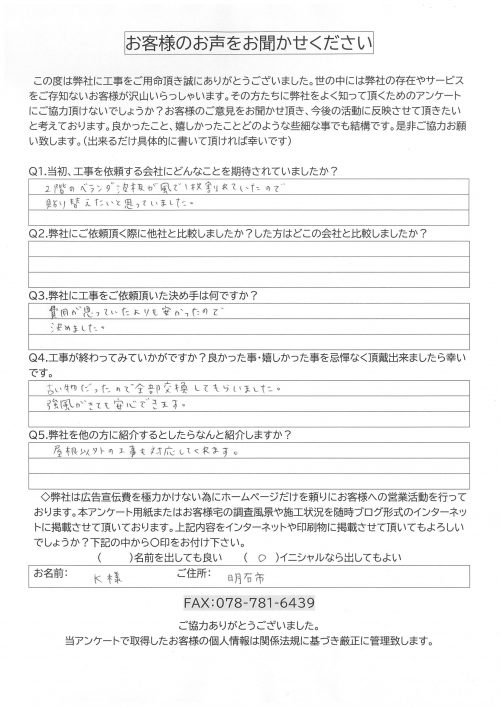 お客様のお声をお聞かせください
この度は弊社に工事をご用命頂き誠にありがとうございました。世の中には弊社の存在やサービス
をご存知ないお客様が沢山いらっしゃいます。その方たちに弊社をよく知って頂くためのアンケート
にご協力頂けないでしょうか？お客様のご意見をお聞かせ頂き、今後の活動に反映させて頂きたい
と考えております。良かったこと、嬉しかったことどのような些細な事でも結構です。是非ご協力お願
い致します。（出来るだけ具体的に書いて頂ければ幸いです）
Q1.当初、工事を依頼する会社にどんなことを期待されていましたか？
2階のベランダ波板が風で1枚割れていたので
貼り替えたいと思っていました。
Q2.弊社にご依頼頂く際に他社と比較しましたか？した方はどこの会社と比較しましたか？
Q3.弊社に工事をご依頼頂いた決め手は何ですか？
費用が思っていたよりも安かったので
決めました。
Q4.工事が終わってみていかがですか？良かった事・嬉しかった事を忌憚なく頂戴出来ましたら幸い
です。
古い物だったので全部交換してもらいました。
強風がきても安心できます。
Q5.弊社を他の方に紹介するとしたらなんと紹介しますか？
屋根以外の工事も対応してくれます。
◇弊社は広告宣伝費を極力かけない為にホームページだけを頼りにお客様への営業活動を行って
おります。本アンケート用紙またはお客様宅の調査風景や施工状況を随時ブログ形式のインターネッ
トに掲載させて頂いております。上記内容をインターネットや印刷物に掲載させて頂いてもよろしい
でしょうか？下記の中から〇印をお付け下さい。
（　　）名前を出しても良い　（ ○ ）イニシャルなら出してもよい
お名前：　K様　ご住所：　明石市
FAX：078-781-6439
ご協力ありがとうございました。
当アンケートで取得したお客様の個人情報は関係法規に基づき厳正に管理致します。